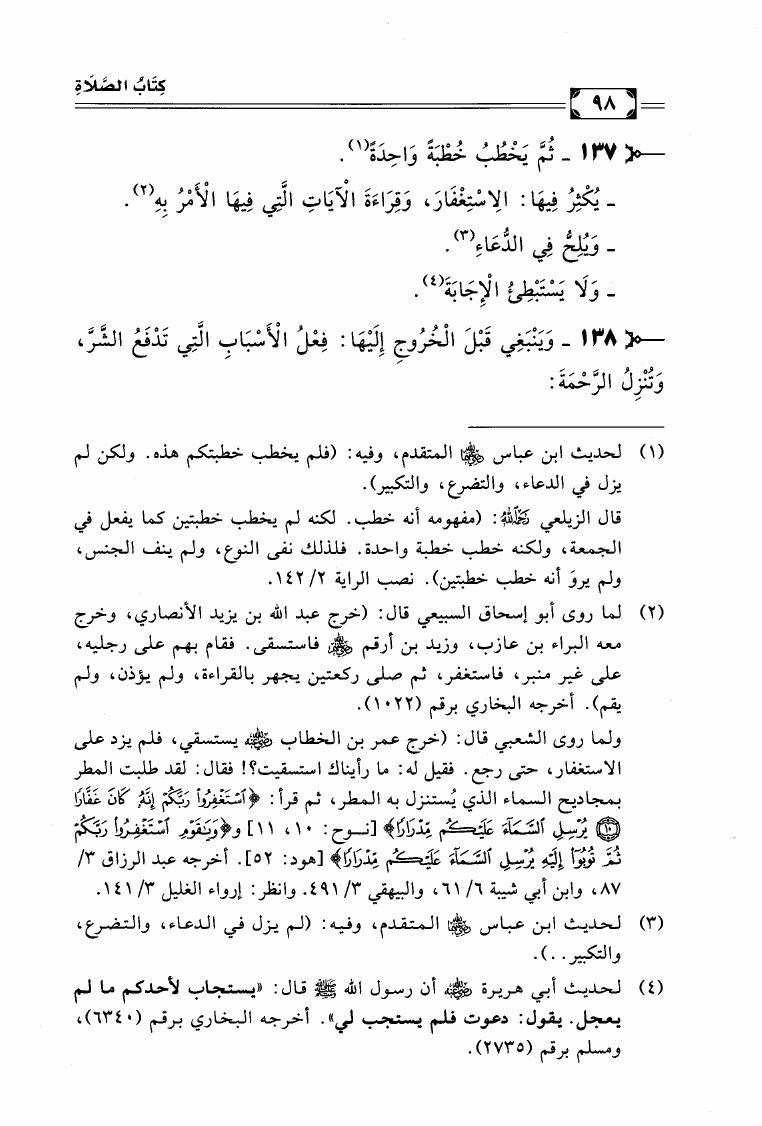 كِتَابُ الصَّلَاةِ
٩٨
١٣٧ ـ ثُمَّ يَخْطُبُ خُطْبَةً وَاحِدَةً(١).
ـ يُكْثِرُ فِيهَا: الِاسْتِغْفَارَ، وَقِرَاءَةَ الْآيَاتِ الَّتِي فِيهَا الْأَمْرُ بِهِ(٢).
ـ وَيُلِحُّ فِي الدُّعَاءِ(٣).
ـ وَلَا يَسْتَبْطِئُ الْإِجَابَةَ(٤).
١٣٨ ـ وَيَنْبَغِي قَبْلَ الْخُرُوجِ إِلَيْهَا: فِعْلُ الْأَسْبَابِ الَّتِي تَدْفَعُ الشَّرَّ،
وَتُنْزِلُ الرَّحْمَةَ:
(١) لحديث ابن عباس رضي الله عنهما المتقدم، وفيه: (فلم يخطب خطبتكم هذه. ولكن لم
يزل في الدعاء، والتضرع، والتكبير).
قال الزيلعي رحمه الله: (مفهومه أنه خطب. لكنه لم يخطب خطبتين كما يفعل في
الجمعة، ولكنه خطب خطبة واحدة. فلذلك نفى النوع، ولم ينف الجنس،
ولم يروَ أنه خطب خطبتين). نصب الراية ٢/ ١٤٢.
(٢) لما روى أبو إسحاق السبيعي قال: (خرج عبد الله بن يزيد الأنصاري، وخرج
معه البراء بن عازب، وزيد بن أرقم رضي الله عنهم فاستسقى. فقام بهم على رجليه،
على غير منبر، فاستغفر، ثم صلى ركعتين يجهر بالقراءة، ولم يؤذن، ولم
يقم). أخرجه البخاري برقم (١٠٢٢).
ولما روى الشعبي قال: (خرج عمر بن الخطاب رضي الله عنه يستسقي، فلم يزد على
الاستغفار، حتى رجع. فقيل له: ما رأيناك استسقيت؟! فقال: لقد طلبت المطر
بمجاديح السماء الذي يُستنزل به المطر، ثم قرأ: ﴿ٱسْتَغْفِرُواْ رَبَّكُمْ إِنَّهُۥ كَانَ غَفَّارًا
۝١٠ يُرْسِلِ ٱلسَّمَآءَ عَلَيْكُم مِّدْرَارًا﴾ [نوح: ١٠، ١١] و﴿وَيَٰقَوْمِ ٱسْتَغْفِرُواْ رَبَّكُمْ
ثُمَّ تُوبُوٓاْ إِلَيْهِ يُرْسِلِ ٱلسَّمَآءَ عَلَيْكُم مِّدْرَارًا﴾ [هود: ٥٢]. أخرجه عبد الرزاق ٣/
٨٧، وابن أبي شيبة ٦/ ٦١، والبيهقي ٣/ ٤٩١. وانظر: إرواء الغليل ٣/ ١٤١.
(٣) لحديث ابن عباس رضي الله عنهما المتقدم، وفيه: (لم يزل في الدعاء، والتضرع،
والتكبير..).
(٤) لحديث أبي هريرة رضي الله عنه أن رسول الله ﷺ قال: «يستجاب لأحدكم ما لم
يعجل. يقول: دعوت فلم يستجب لي». أخرجه البخاري برقم (٦٣٤٠)،
ومسلم برقم (٢٧٣٥).